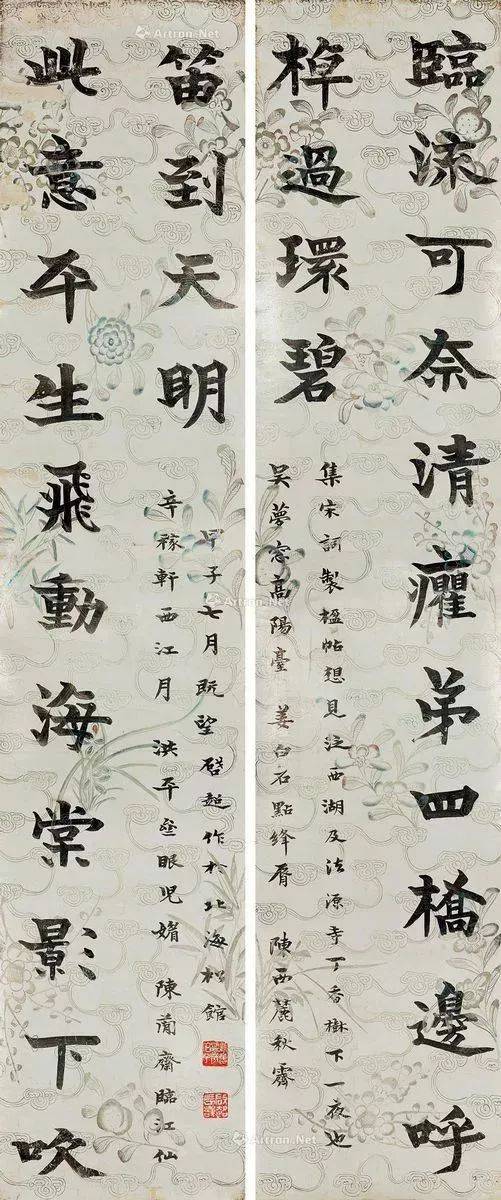 臨流可奈清癯弟四橋邊呼
棹過環碧
集宋詞製楹帖想見泛西湖及法源寺丁香樹下一夜也
吳夢窗高陽臺 姜白石點絳脣 陳西麓秋霽
此意平生飛動海棠影下吹
笛到天明
辛稼軒西江月 洪平齋眼兒媚 陳簡齋臨江仙
甲子七月既望啟超作於北海松館
Artron.Net